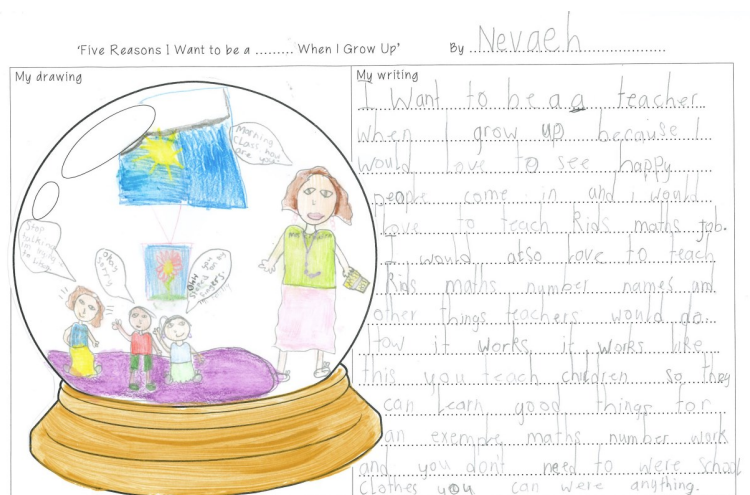 'Five Reasons I Want to be a ......... When I Grow Up'
By Nevaeh
My drawing
My writing
Morning
Class how
are you
Stop
talking
Okay
sorry
I Want to be a a teacher
when I grow up because I
would love to see happy
people come in and i would
love to teach kids maths job.
I would also love to teach
kids maths number names and
other things teachers would do.
How it works it works like
this you teach children so they
can Learn good things for
an exemple maths number work
and you don't need to were school
clothes you can were anything.